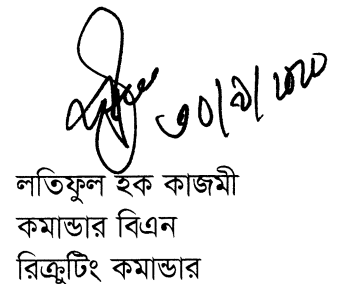 ৩০/৯/২০২০
লতিফুল হক কাজমী
কমান্ডার বিএন
রিক্রুটিং কমান্ডার